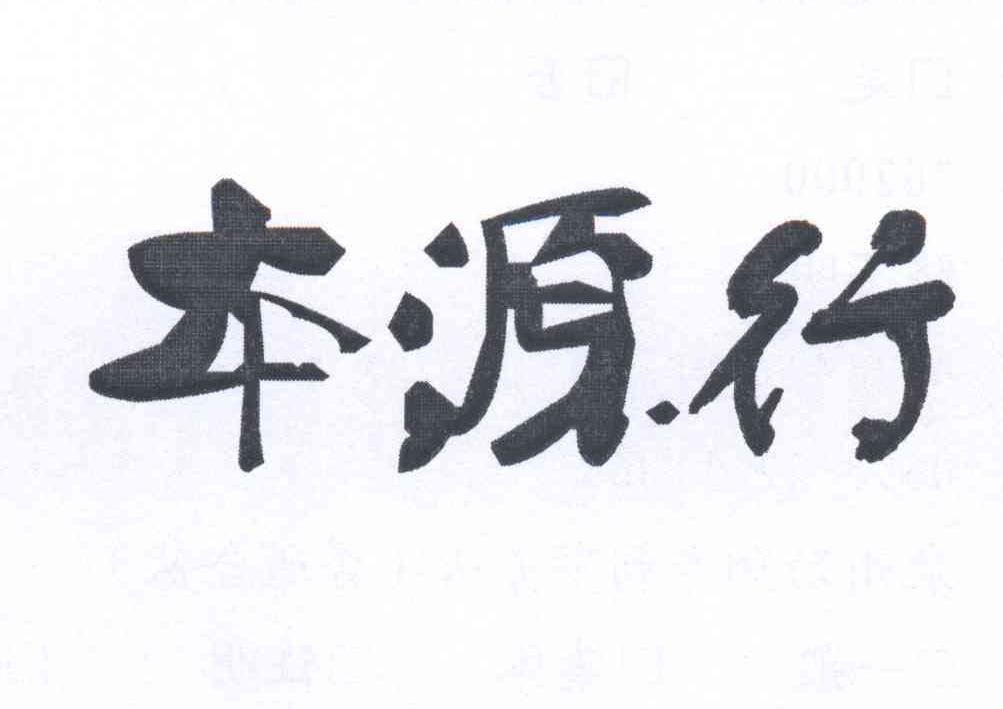 本源行